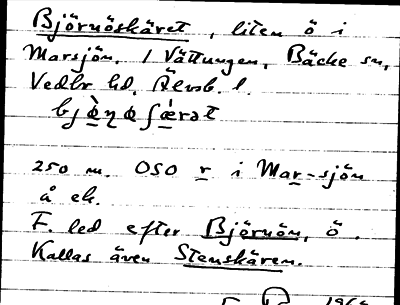 Björnöskäret, liten ö i
Marsjön. / Vättungen, Bäcke sn,
Vedbo hd, Älvsb. l.
250 m. OSO r i Mar-sjön
å ek.
F. led efter Björnön, ö.
Kallas även Stenskären.